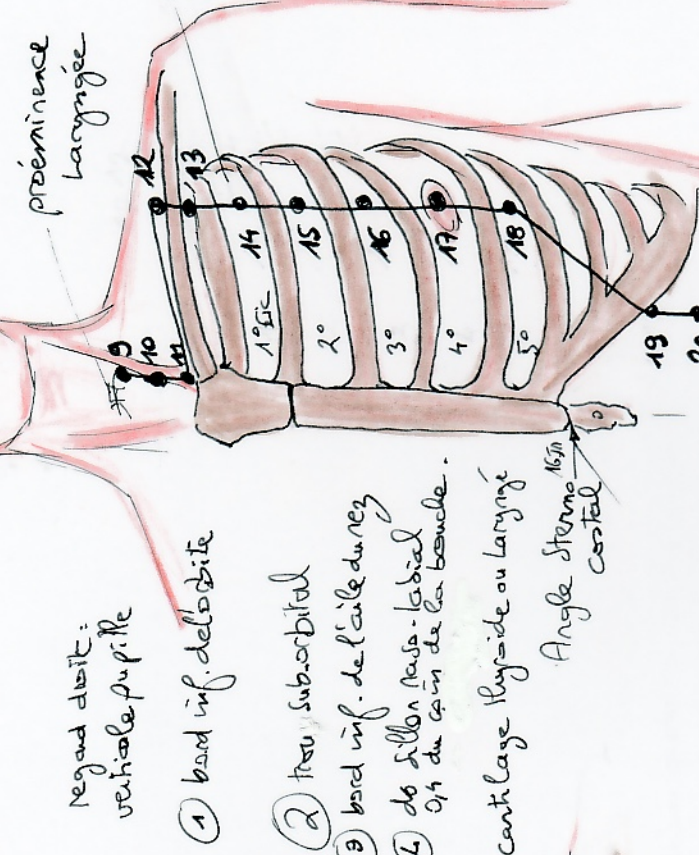 proéminence
Laryngée
12
13
9
10
11
14
15
16
17
18
19
1° EIC
2°
3°
4°
5°
regard droit :
verticale pupille
① bord inf. de l'orbite
② trou suborbital
③ bord inf. de l'aile du nez
④ do sillon naso-labial
0,4 du coin de la bouche.
cartilage thyroïde ou Laryngé
Angle sterno
costal